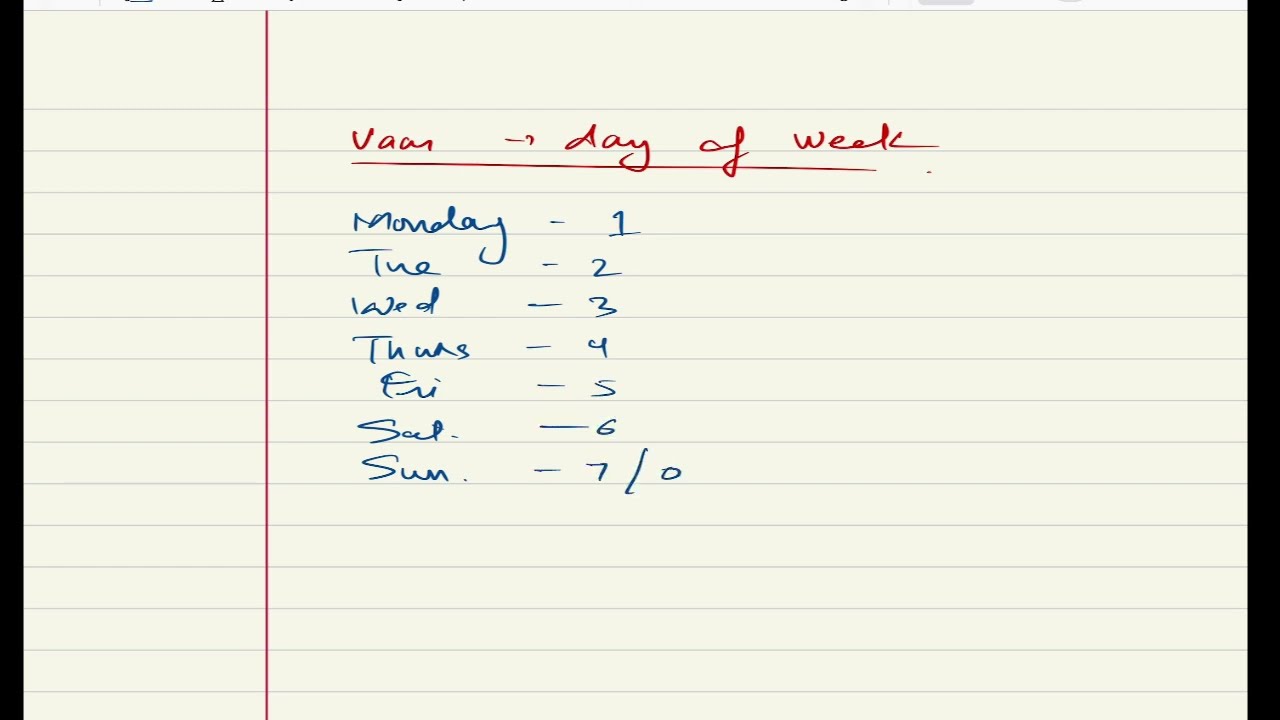 Vaar → day of week
Monday - 1
Tue - 2
Wed - 3
Thurs - 4
Fri - 5
Sat. - 6
Sun. - 7/0